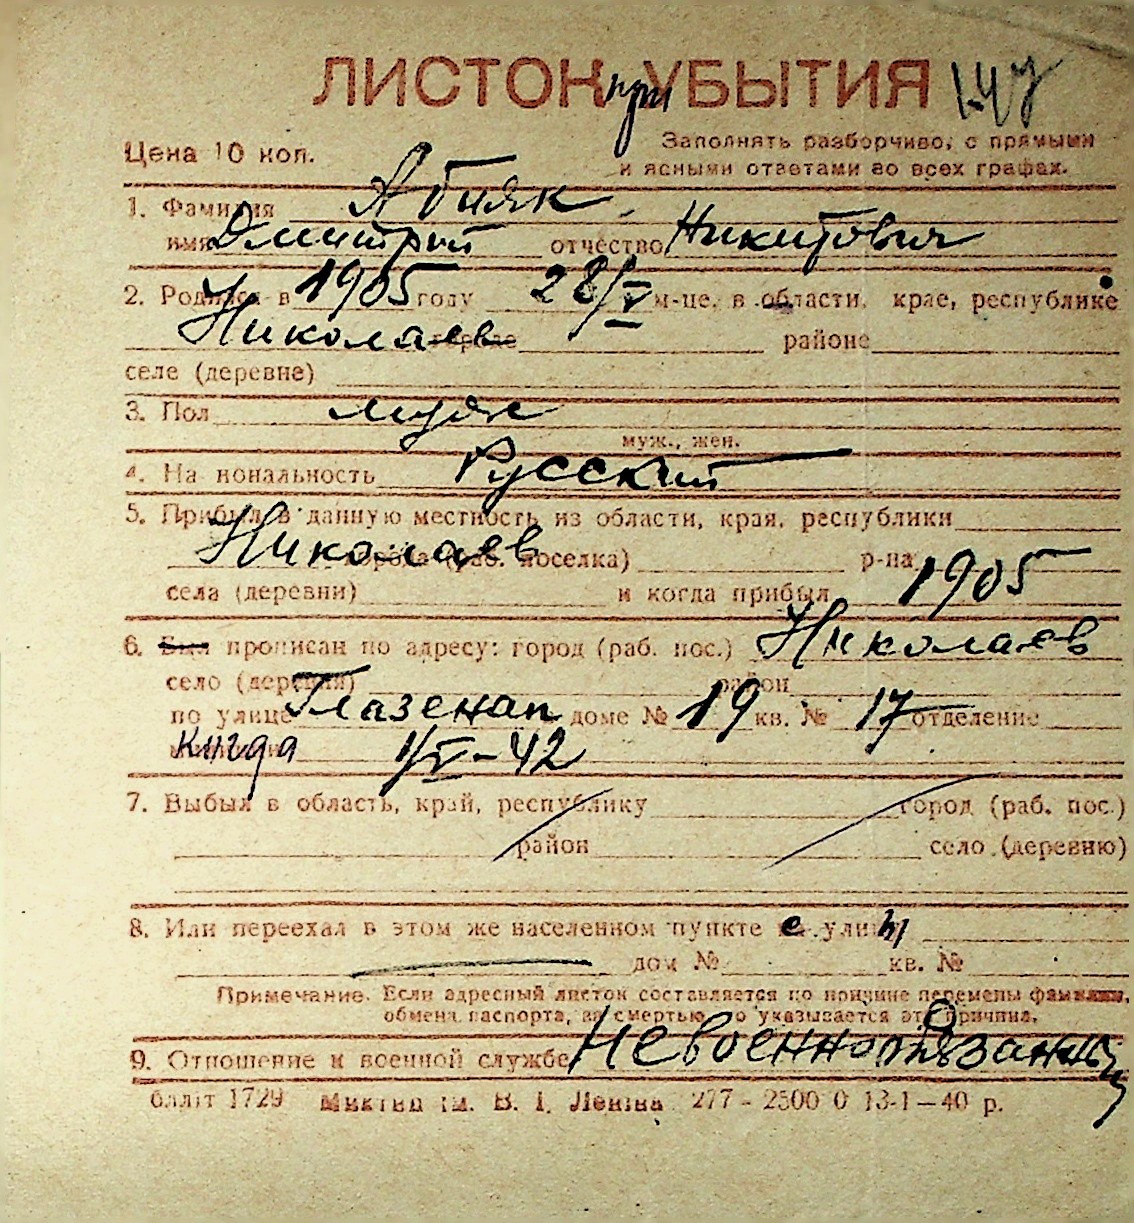 ЛИСТОК при УБЫТИЯ
Цена 10 коп.
Заполнять разборчиво, с прямыми
и ясными ответами во всех графах.
1. Фамилия Абияк
имя Дмитрий отчество Никитович
2. Родился в 1905 году 28/V м-це, в области, крае, республике
Николаев городе районе
селе (деревне)
3. Пол муж
муж., жен.
4. Национальность Русский
5. Прибыл в данную местность из области, края, республики
Николаев города (раб. поселка) р-на
села (деревни) и когда прибыл 1905
6. Был прописан по адресу: город (раб. пос.) Николаев
село (деревня) район
по улице Глазенап доме № 19 кв. № 17 отделение
когда 1/V-42
7. Выбыл в область, край, республику город (раб. пос.)
район село (деревню)
8. Или переехал в этом же населенном пункте с улицы
дом № кв. №
Примечание. Если адресный листок составляется по причине перемены фамилии,
обмена паспорта, за смертью, то указывается эта причина.
9. Отношение к военной службе Невоеннообязанный
блліт 1729 Миктвп ім. В. І. Леніна 277 - 2500 0 13-1-40 р.